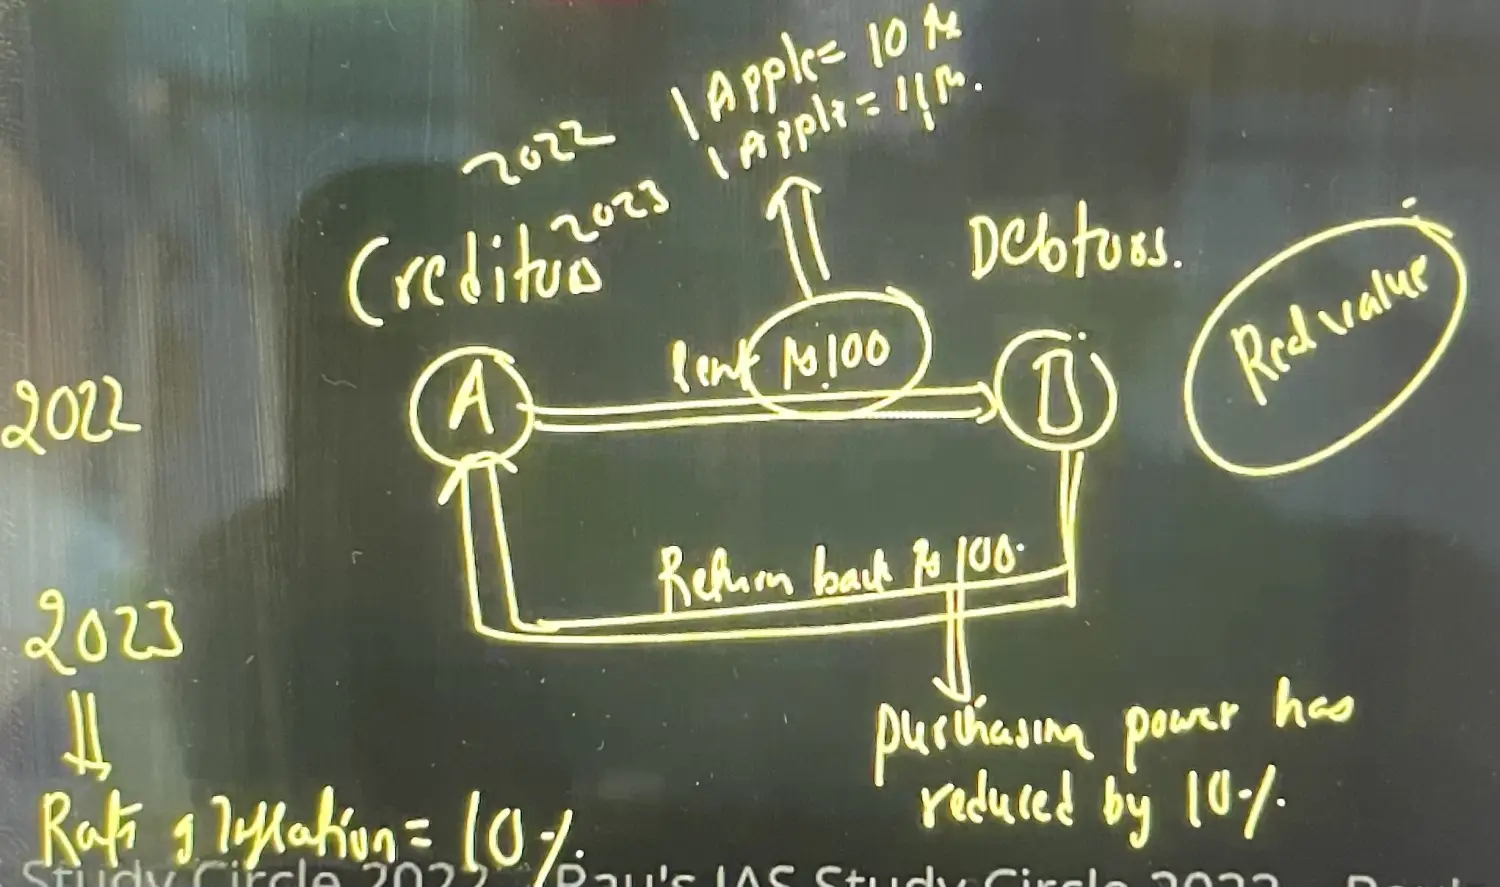 1 Apple = 10 Rs
2022
1 Apple = 11 Rs.
2023
Creditors
Debtors.
Real value
lent Rs.100
A
B
2022
Return back Rs 100.
2023
purchasing power has
reduced by 10%.
Rate of Inflation = 10%.
Study Circle 2022
Rau's IAS Study Circle 2022